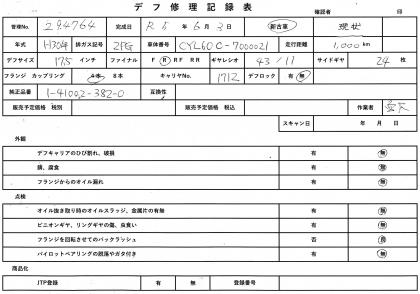 デフ修理記録表
確認者 印
管理No. 284764 完成日 R5年6月3日 新古車 現状
年式 H30年 排ガス記号 2PG 車体番号 CYL60C-7000021 走行距離 1,000km
デフサイズ 17.5インチ ファイナル F R RF RR ギヤレシオ 43/11 サイドギヤ 24枚
フランジ カップリング 4本 8本 キャリヤNo. 1712 デフロック 有 無
純正品番 1-41002-382-0 互換性
販売予定価格 税別 販売予定価格 税込 作業者
スキャン日 年 月 日
外観
デフキャリアのひび割れ、破損 有 無
錆、腐食 有 無
フランジからのオイル漏れ 有 無
点検
オイル抜き取り時のオイルスラッジ、金属片の有無 有 無
ピニオンギヤ、リングギヤの傷、虫食い 有 無
フランジを回転させてのバックラッシュ 否 良
パイロットベアリングの脱落やガタ付き 有 無
商品化
JTP登録 有 無 登録番号